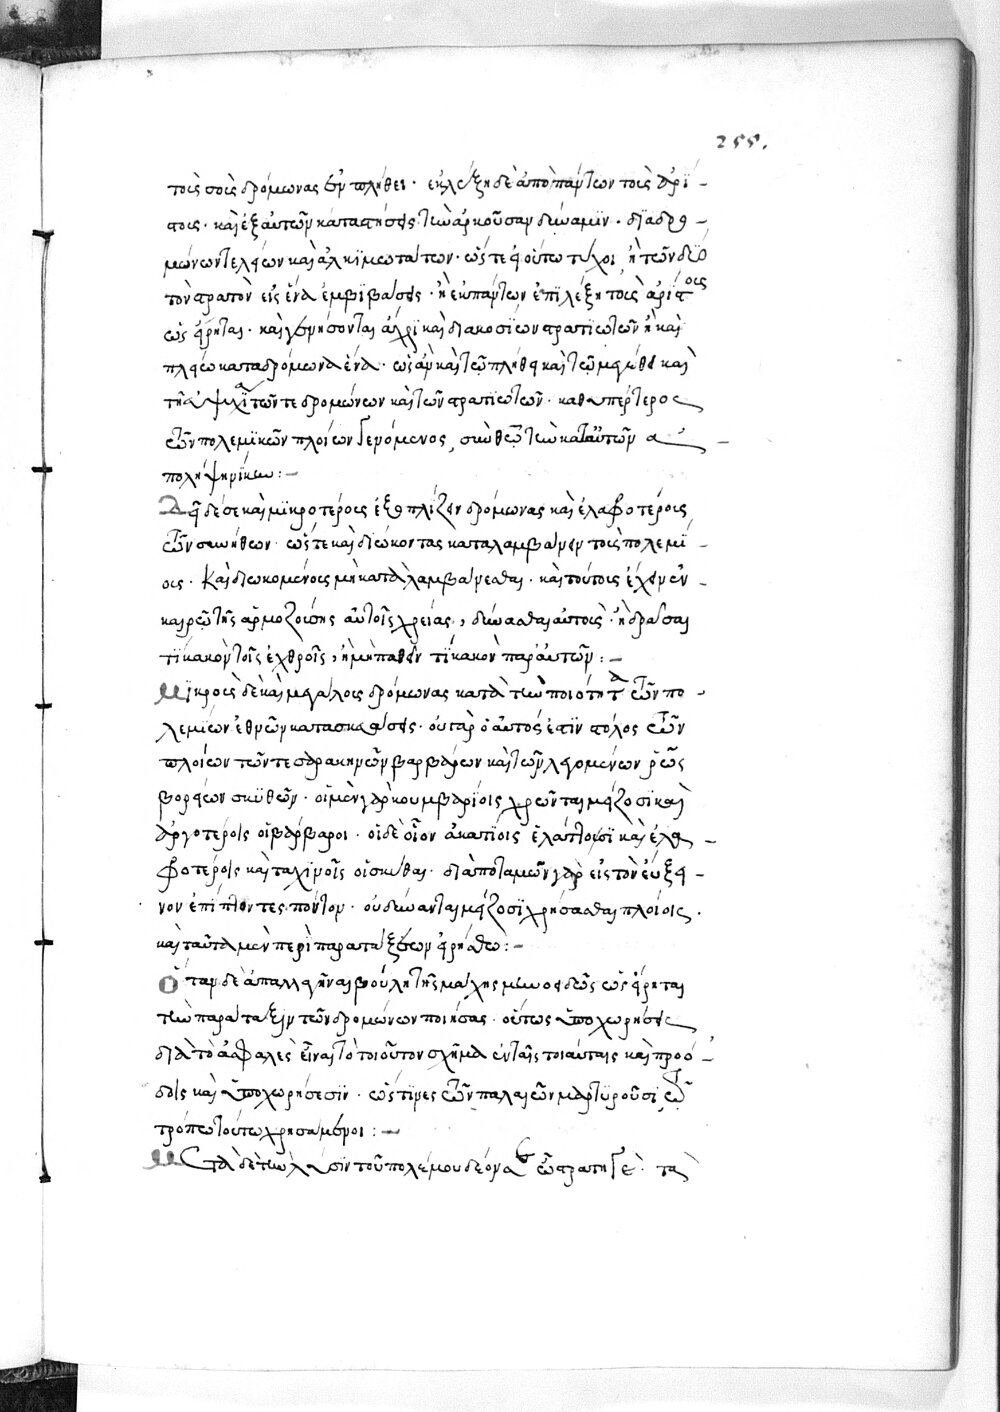 255.
τοὺς σοὺς δρόμωνας ἐν πλήθει· ἐκλέξῃ δὲ ἀπὸ πάντων τοὺς ἀρί-
στους· καὶ ἐξ αὐτῶν καταστήσεις τὴν ἀρκοῦσαν δύναμιν· διὰ δρο-
μώνων τελείων καὶ ἀλκιμωτάτων· ὥστε εἰ οὕτω τύχοι, ἢ τῶν δύο
τὸν στρατὸν εἰς ἕνα ἐμβιβάσεις· ἢ ἐκ πάντων ἐπιλέξῃ τοὺς ἀρίστους
ὡς εἴρηται· καὶ γενήσονται ἄχρι καὶ διακοσίων στρατιωτῶν ἢ καὶ
πλείω κατὰ δρόμωνα ἕνα· ὡς ἂν καὶ τῷ πλήθει καὶ τῷ μεγέθει καὶ
τῇ εὐψυχίᾳ τῶν τε δρομώνων καὶ τῶν στρατιωτῶν· καθυπέρτερος
τῶν πολεμικῶν πλοίων γενόμενος, σὺν θεῷ τὴν κατ' αὐτῶν ἀ-
πολήψῃ νίκην:-
Δεῖ δέ σε καὶ μικροτέρους ἐξοπλίζειν δρόμωνας καὶ ἐλαφροτέρους
τῶν συνήθων· ὥστε καὶ διώκοντας καταλαμβάνειν τοὺς πολεμί-
ους· καὶ διωκομένους μὴ καταλαμβάνεσθαι· καὶ τούτους ἔχειν ἐν
καιρῷ τῆς ἁρμοζούσης αὐτοῖς χρείας, δύνασθαι αὐτοὺς· ἢ δρᾶσαι
τὶ κακὸν τοῖς ἐχθροῖς, ἢ μὴ παθεῖν τὶ κακὸν παρ' αὐτῶν:-
Μικροὺς δὲ καὶ μεγάλους δρόμωνας κατὰ τὴν ποιότητα τῶν πο-
λεμίων ἐθνῶν κατασκευάσεις· οὐ γὰρ ὁ αὐτός ἐστιν στόλος τῶν
πλοίων τῶν τε σαρακηνῶν βαρβάρων καὶ τῶν λεγομένων ῥῶς
βορείων σκυθῶν· οἱ μὲν γὰρ κουμβαρίοις χρῶνται μείζοσι καὶ
ἀργοτέροις οἱ βάρβαροι· οἱ δὲ οἷον ἀκατίοις ἐλάττοσι καὶ ἐλα-
φροτέροις καὶ ταχινοῖς οἱ σκύθαι· διὰ ποταμῶν γὰρ εἰς τὸν εὔξει-
νον ἐπίπτοντες πόντον· οὐ δύνανται μείζοσι χρήσασθαι πλοίοις·
καὶ ταῦτα μὲν περὶ παρατάξεων εἰρήσθω:-
Ὅταν δὲ ἀπαλλαγῆναι βούλῃ τῆς μάχης μηνοειδῶς ὡς εἴρηται
τὴν παράταξιν τῶν δρομώνων ποιήσας· οὕτως ὑποχωρήσεις
διὰ τὸ ἀσφαλὲς εἶναι τὸ τοιοῦτον σχῆμα ἐν ταῖς τοιαύταις καὶ προό-
δοις καὶ ὑποχωρήσεσιν· ὥς τινες τῶν παλαιῶν μαρτυροῦσι, τῷ
τρόπῳ τούτῳ χρησάμενοι:-
Μετὰ δὲ τὴν λύσιν τοῦ πολέμου δέον σε ὦ στρατηγὲ· τὰ